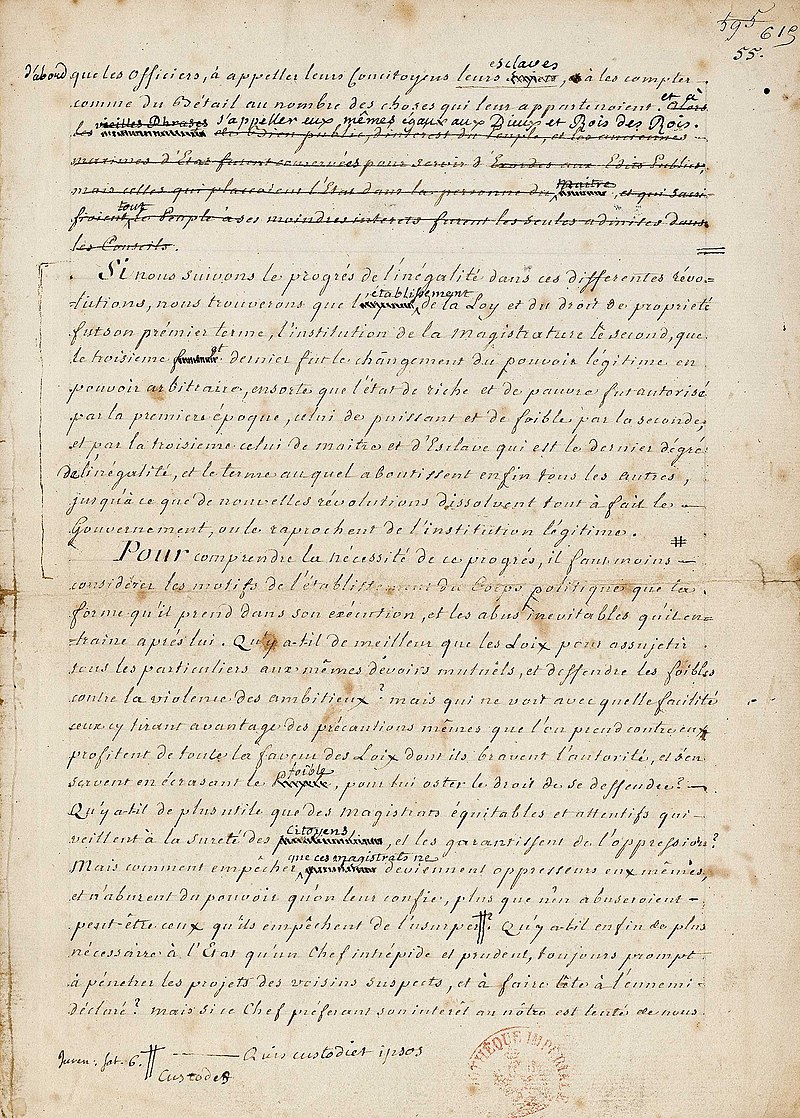 595 619
55.
esclaves
d'abord que les Officiers, à appeller leurs Concitoyens leurs , à les compter
comme du Bétail au nombre des choses qui leur appartenoient et à Alors
vieilles Phrases s'appeller eux, mêmes égaux aux Dieux et Rois des Rois.
les de bien public, d'interest du Peuple, et les anciennes
maximes d'Etat furent conservées pour servir d'Exordes aux Edits Publics,
maitre
mais celles qui plaçoient l'Etat dans la personne du , et qui sacri-
tout
fioient le Peuple à ses moindres interets furent les seules admises dans
les Conseils.
Si nous suivons le progrés de l'inégalité dans ces differentes révo-
établissement
-lutions, nous trouverons que l' de la Loy et du droit de proprieté
fut son prémier terme, l'institution de la magistrature le second, que
le troisieme et dernier fut le changement du pouvoir légitime en
pouvoir arbitraire, ensorte que l'état de riche et de pauvre fut autorisé
par la premiere époque, celui de puissant et de foible par la seconde,
et par la troisieme celui de maitre et d'Esclave qui est le dernier dégré
de l'inégalité, et le terme auquel aboutissent enfin tous les autres,
jusqu'à ce que de nouvelles révolutions dissolvent tout à fait le
Gouvernement, ou le raprochent de l'institution légitime.
#
Pour comprendre la nécessité de ce progrés, il faut moins
considérer les motifs de l'établissement du Corps politique que la
forme qu'il prend dans son exécution, et les abus inévitables qu'il en-
-traine aprés lui. Qu'y a-t-il de meilleur que les Loix pour assujetir
tous les particuliers aux mêmes dévoirs mutuëls, et deffendre les foibles
contre la violence des ambitieux? mais qui ne voit avec quelle facilité
ceux cy tirant avantage des précautions mêmes que l'on prend contre eux
profitent de toute la faveur des Loix dont ils bravent l'autorité, et s'en
foible
servent en écrasant le , pour lui oster le droit de se deffendre?
Qu'y a-t-il de plus utile que des magistrats équitables et attentifs qui
Citoyens
veillent à la sureté des , et les garantissent de l'oppression?
que ces magistrats ne
Mais comment empêcher deviennent oppresseurs eux mêmes,
et n'abusent du pouvoir qu'on leur confie, plus que n'en abuseroient
peut-être ceux qu'ils empêchent de l'usurper? Qu'y a-t-il enfin de plus
nécessaire à l'Etat qu'un Chef intrépide et prudent, toujours prompt
à pénetrer les projets des voisins suspects, et à faire tête à l'ennemi
déclaré? mais si ce Chef préferant son interêt au nôtre est tenté de nous
Juven: sat. 6. Quis custodiet ipsos
Custodes
BIBLIOTHÈQUE IMPÉRIALE